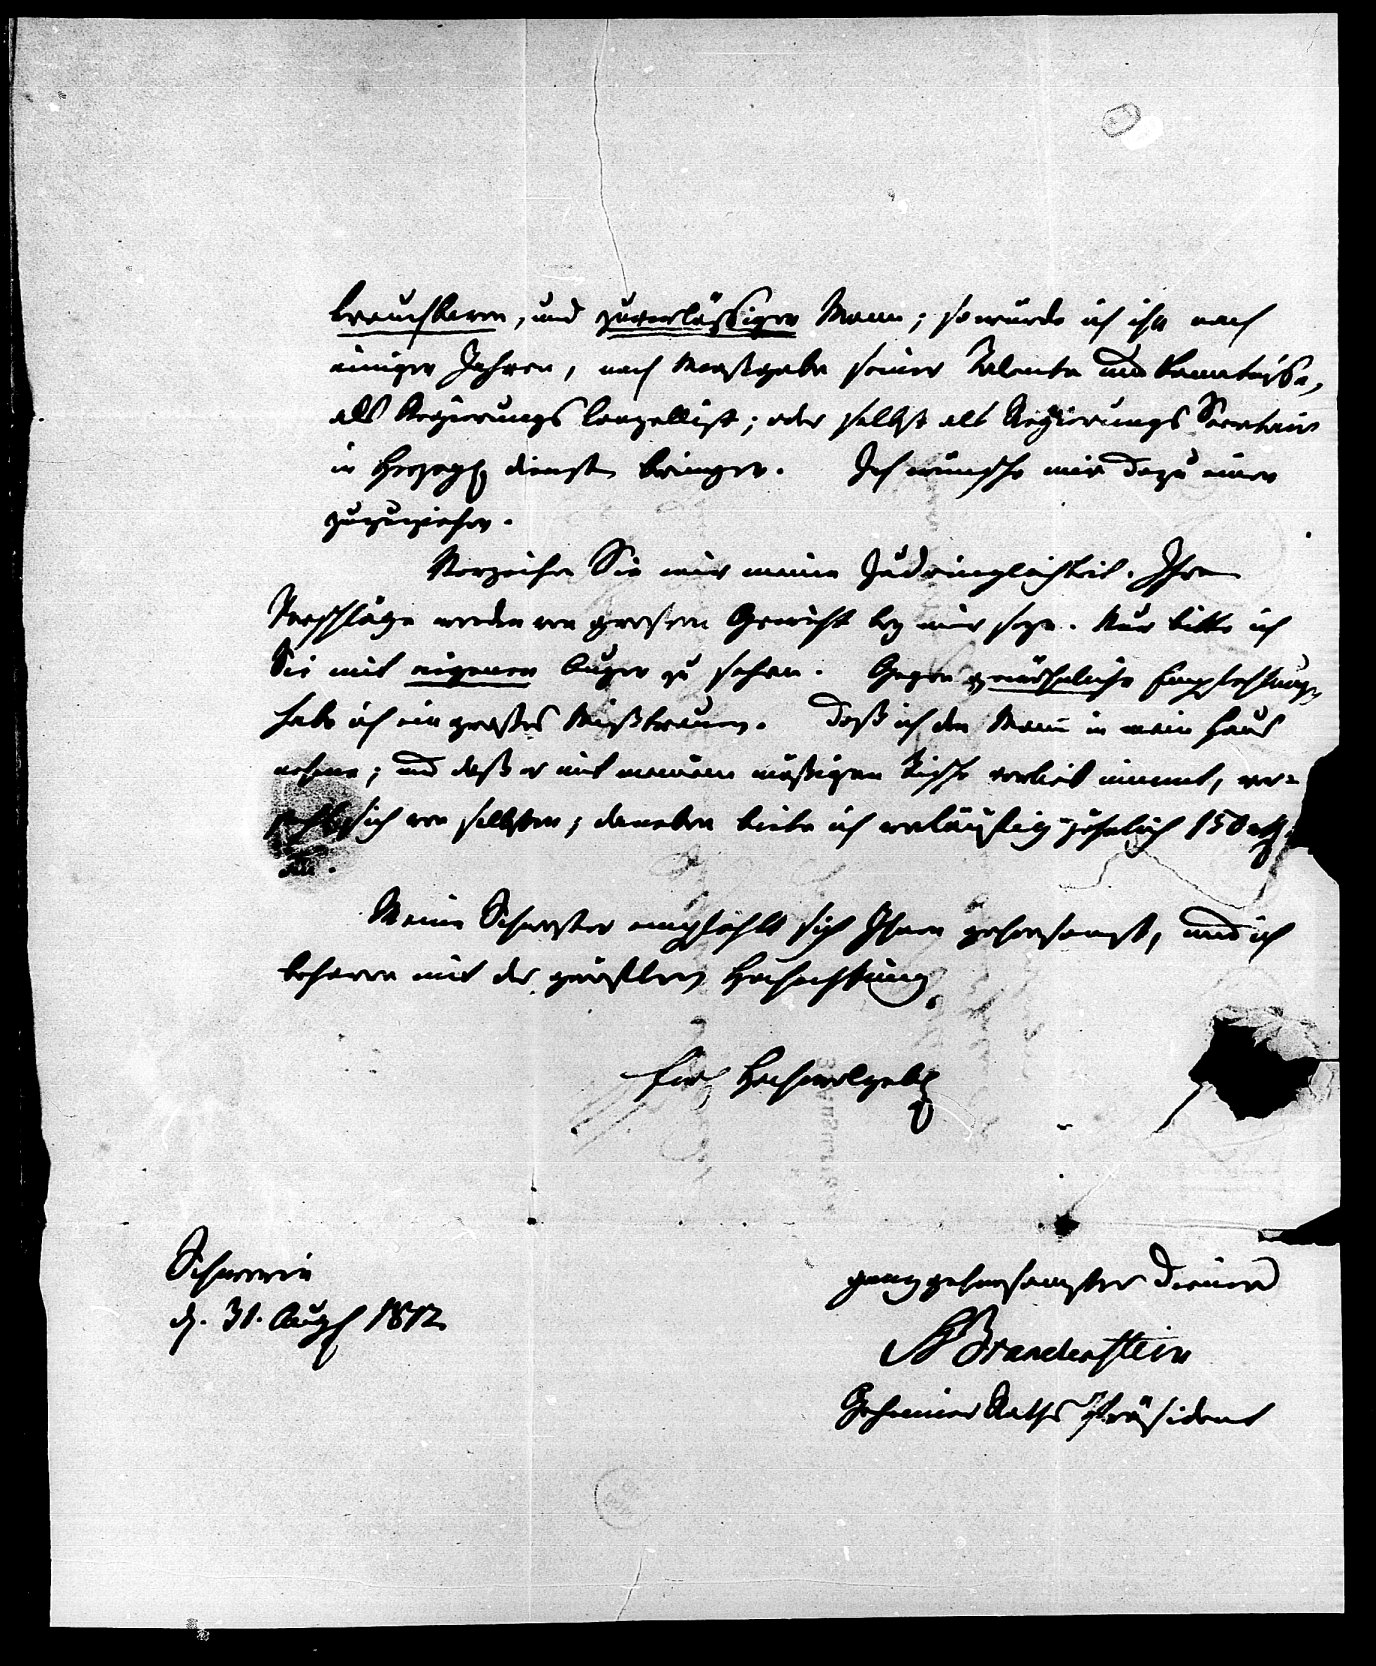 brauchbaren, und zuverlässigen Mann; so würde ich ihn nach
einigen Jahren, nach Maasgabe seiner Talente und Kenntniße,
als Regierungs Canzellist; oder selbst als Regierungs Secretair
in Herzogl dienste bringen. Ich wünsche mir dazu einen
zuzuziehen.
Verzeihen Sie mir meine Zudringlichkeit. Ihre
Vorschläge werden von großem Gewicht bey mir seyn. Nur bitte ich
Sie mit eigenen Augen zu sehen. Gegen gewöhnliche Empfehlungen
habe ich ein großes Mißtrauen. Daß ich den Mann in mein Haus
nehme; und daß er mit meinem mäßigen Tische vorlieb nimmt, ver-
steht sich von selbsten; daneben biete ich vorläufig jährlich 150 rth
an.
Meine Schwester empfiehlt sich Ihnen gehorsamst, und ich
beharre mit der größten Hochachtung
Ew Hochwolgeb
Schwerin
d. 31. Aug 1812
ganz gehorsamster Diener
Brandenstein
Geheimer Raths Präsident